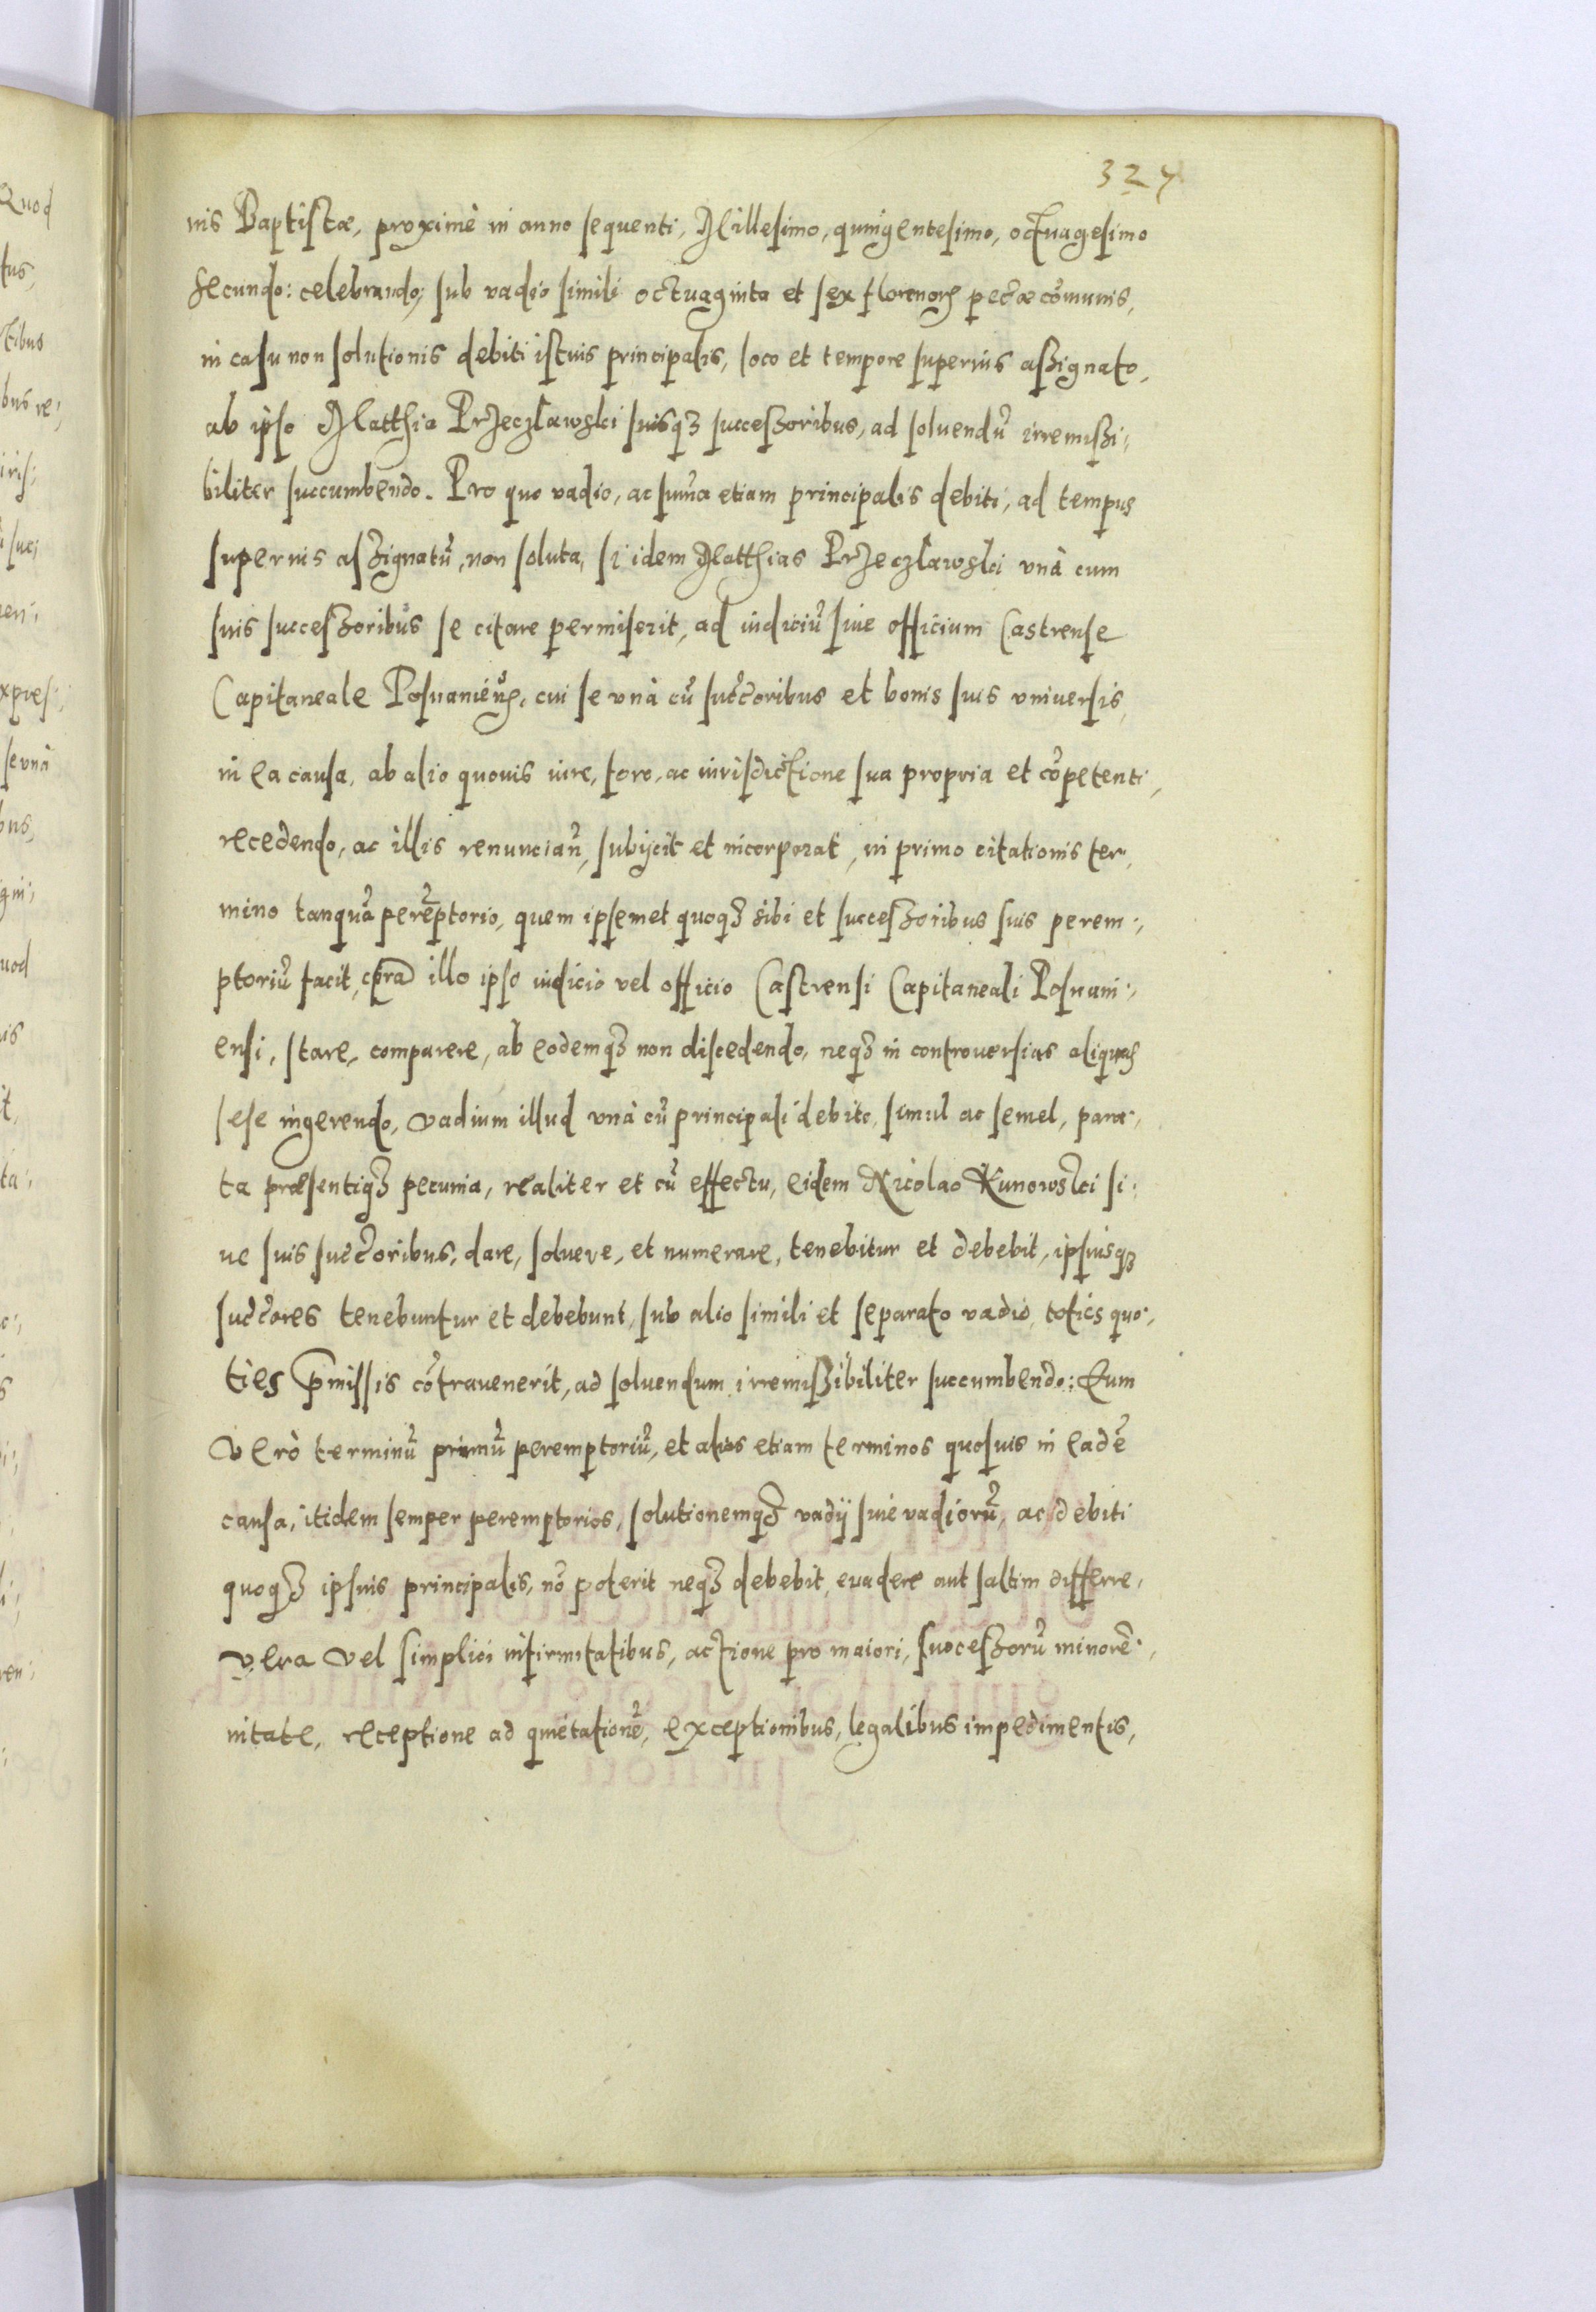 327
nis Baptistæ, proximè in anno sequenti, Millesimo, quingentesimo, octuagesimo
secundo: celebrando, sub vadio simili octuaginta et sex florenorũ pecũæ cõmunis,
in casu non solutionis debiti istius principalis, loco et tempore superius assignato,
ab ipso Matthia Przeczławski suisq3 successoribus, ad soluendũ irremissi:
biliter succumbendo. Pro quo vadio, ac sum̃a etiam principalis debiti, ad tempus
superius assignatũ, non soluta, si idem Matthias Przeczławski vnà cum
suis successoribus se citare permiserit, ad iudiciũ siue officium Castrense
Capitaneale Posnanień, cui se vnà cũ succ̃oribus et bonis suis vniuersis,
in ea causa, ab alio quouis iure, foro, ac iurisdictione sua propria et cõpetenti,
recedendo, ac illis renuncian̄, subijcit et incorporat, in primo citationis ter,
mino tanquã perẽptorio, quem ipsemet quoq3 sibi et successoribus suis perem:,
ptoriũ facit, corã illo ipso iudicio vel officio Castrensi Capitaneali Posnani:,
ensi, stare, comparere, ab eodemq3 non discedendo, neq3 in controuersias aliquas
sese ingerendo, vadium illud vnà cũ principali debito, simul ac semel, para:,
ta præsentiq3 pecunia, realiter et cũ effectu, eidem Nicolao Kunowski si:
ue suis succ̃oribus, dare, soluere, et numerare, tenebitur et debebit, ipsiusq3
succ̃ores tenebuntur et debebunt, sub alio simili et separato vadio, toties quo:,
ties p̄missis cõtrauenerit, ad soluendum irremissibiliter succumbendo: Eum
verò terminũ primũ peremptoriũ, et alios etiam terminos quosuis in eadẽ
causa, itidem semper peremptorios, solutionemq3 vadij siue vadiorũ, ac debiti
quoq3 ipsius principalis, nõ poterit neq3 debebit, euadere aut saltim differre,
vera vel simplici infirmitatibus, actione pro maiori, successorũ minorẽ:,
nitate, receptione ad quietationẽ, exceptionibus, legalibus impedimentis,